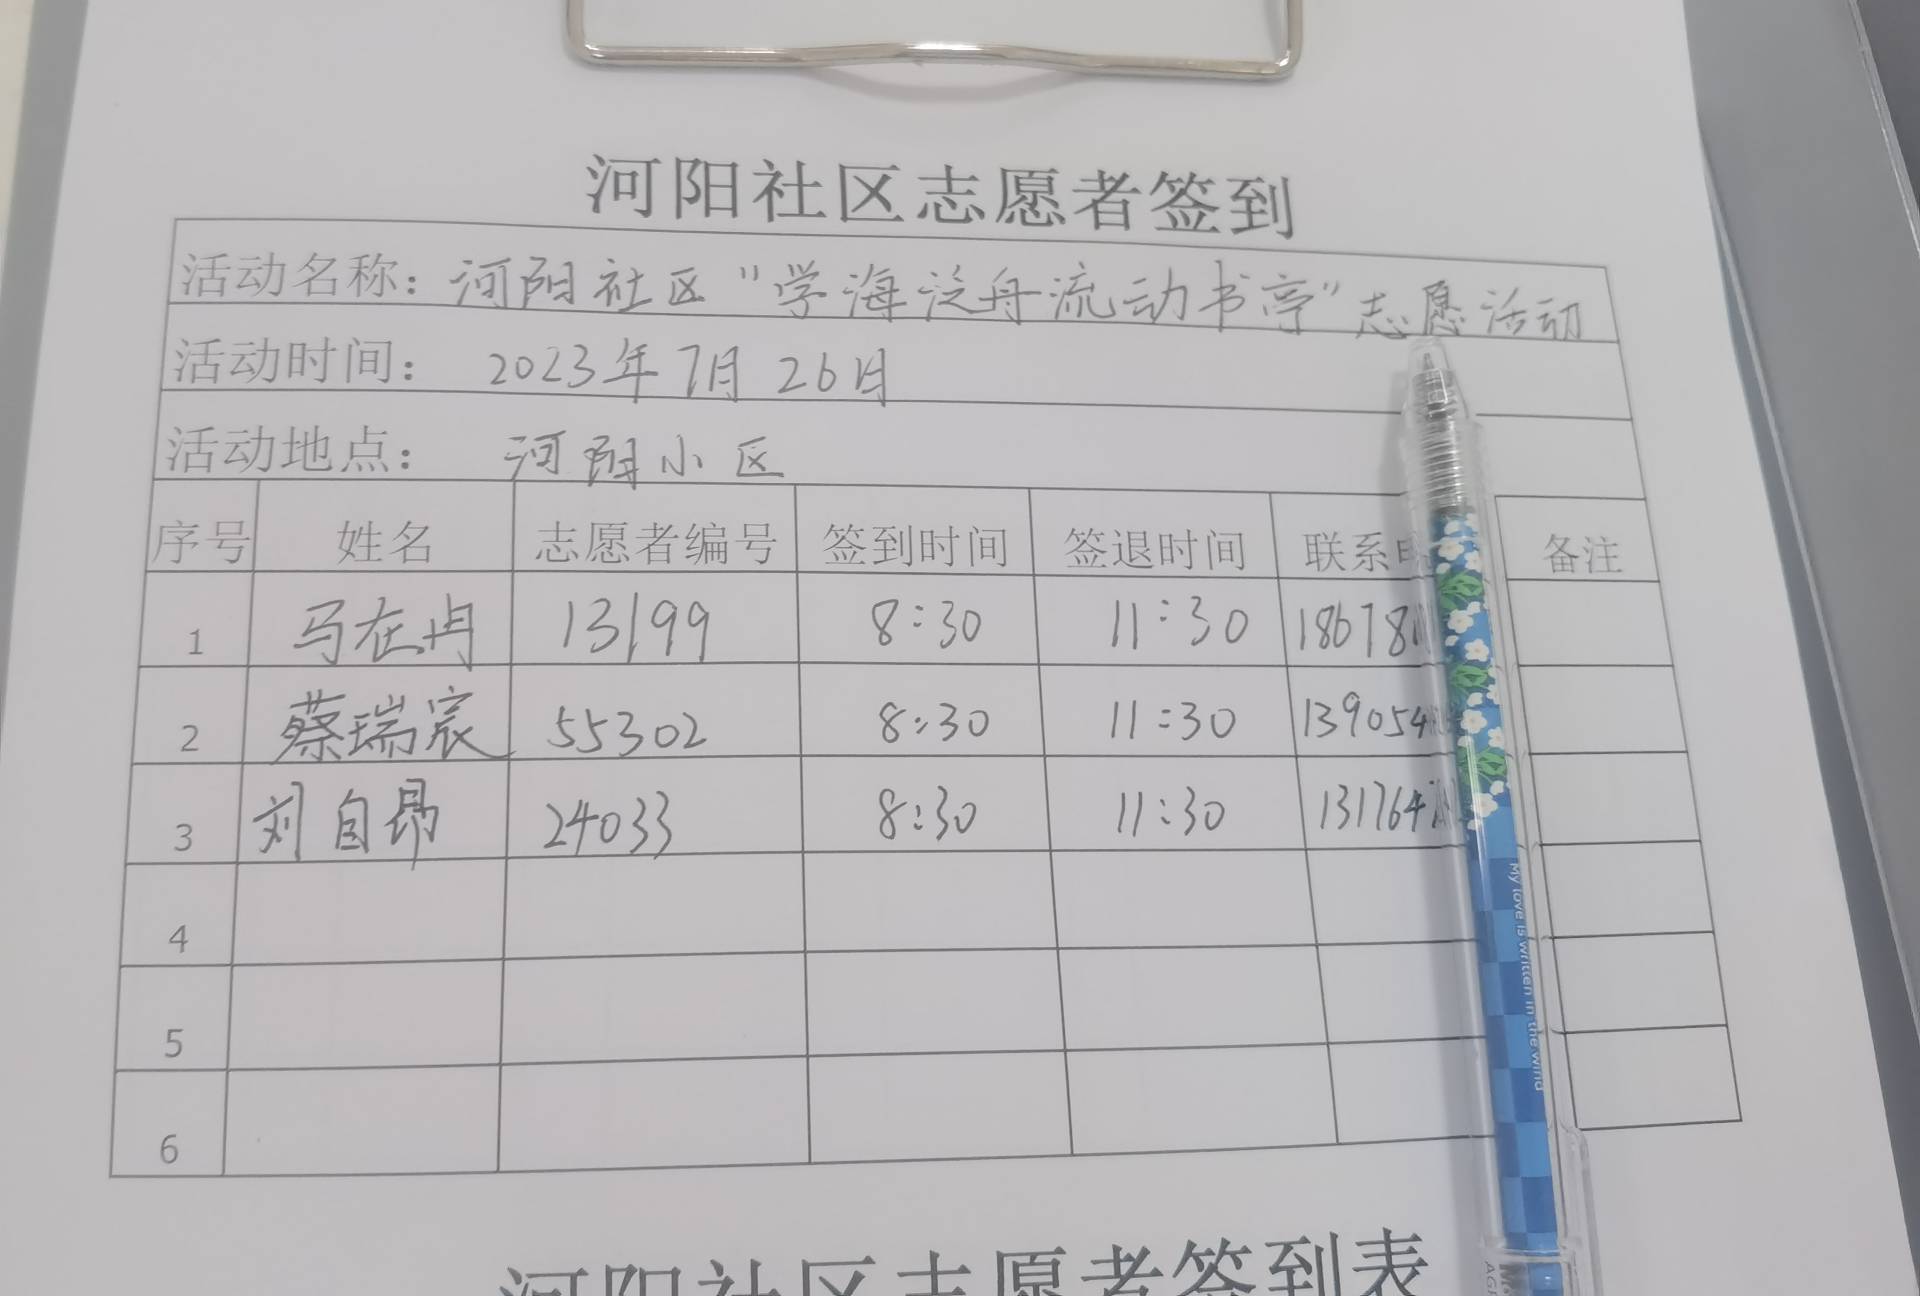 河阳社区志愿者签到
活动名称：河阳社区"学海泛舟流动书亭"志愿活动
活动时间： 2023年7月26日
活动地点： 河阳小区
序号 姓名 志愿者编号 签到时间 签退时间 联系 备注
1 马在冉 13199 8:30 11:30 18678
2 蔡瑞宸 55302 8:30 11:30 139054
3 刘自昂 24033 8:30 11:30 131764
4
5
6
My love is written in the wind
河阳社区志愿者签到表